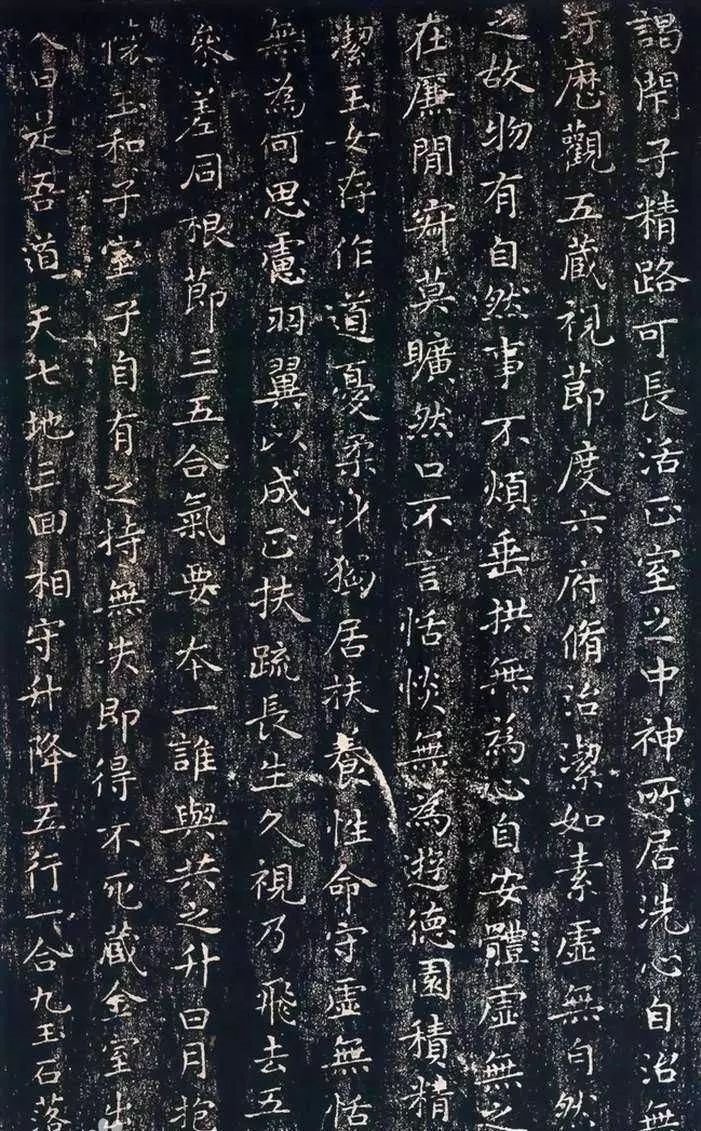 謁閉子精路可長活正室之中神所居洗心自治無
汙歷觀五藏視節度六府脩治潔如素虛無自然
之故物有自然事不煩垂拱無為心自安體虛無之
在廉閒寂莫曠然口不言恬惔無為遊德園積精
潔玉女存作道憂柔身獨居扶養性命守虛無恬
無為何思慮羽翼以成正扶踈長生久視乃飛去五
參差同根節三五合氣要本一誰與共之升日月抱
懷玉和子室子自有之持無失即得不死藏金室出
入日是吾道天七地三回相守升降五行一合九玉石落